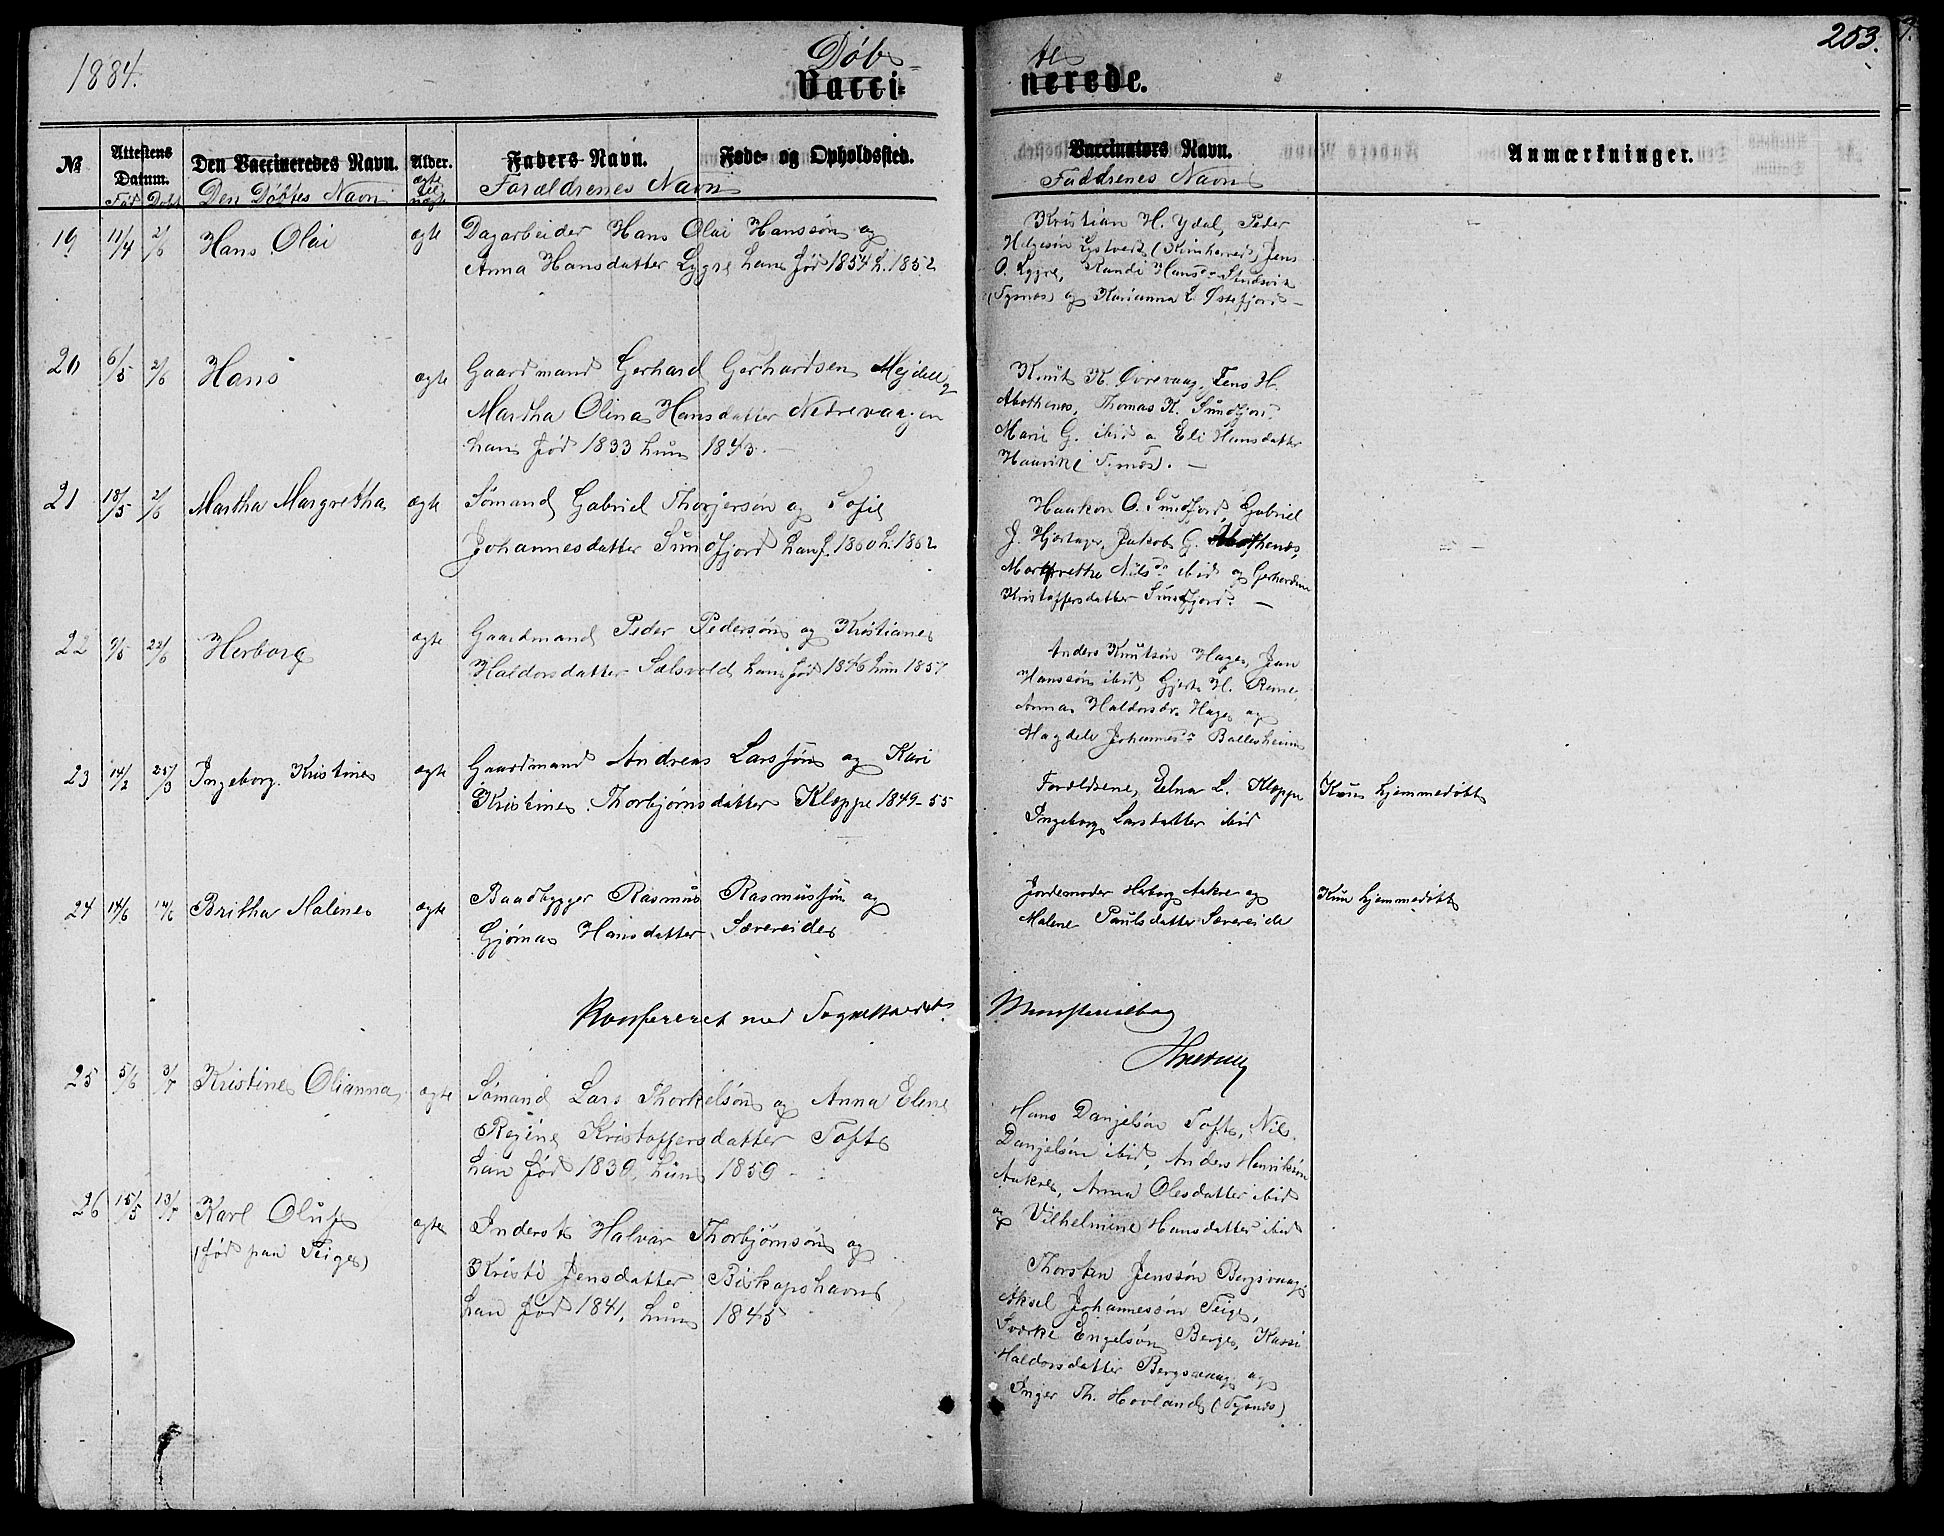 1884.
Døb-
te
253.
Vacci-
nerede.
No.
Attestens Datum.
Den Vaccineredes Navn.
Alder.
Faders Navn.
Føde- og Opholdssted.
Vaccinators Navn.
Anmærkninger.
Fød
Døbt
Den Døbtes Navn
ægte
uægte
Forældrenes Navn
Faddrenes Navn
19 11/4 2/6 Hans Olai ægte Dagarbeider Hans Olai Hanssøn og
Anna Hansdatter Lygre han fød 1854 h. 1852
Kristian H. Ydal, Peder
Helgesøn Lystvedt (Kvinherred) Jens
O. Lygre, Randi Hans
(Tysnæs) og Karianna L. Østefjord
20 6/5 2/6 Hans ægte Gaardmand Gerhard Gerhardsen Mejdell og
Martha Olina Hansdatter Nedrevaagen
han fød 1833 hun 1843.
Knut K. Øvrevaag, Jens H.
Abothenes, Thomas K. Sundfjord
Marie G. ibid o Eli Hansdatter
21 18/5 2/6 Martha Margretha ægte Sømand Gabriel Thorjersøn og Sofie
Johannesdatter Sundfjord han f. 1860 h. 1862
Haakon O. Sundfjord, Gabriel
J. Hjertager, Jakob G. Abothenes,
Margrethe Nilsdr ibid og Gerhardine
Kristoffersdatter Sundfjord. —
22 9/5 22/6 Herborg ægte Gaardmand Peder Pedersøn og Kristiane
Haldorsdatter Sælsvold han fød 1846 hun 1857
Anders Knutsøn Hage, Jan
Hanssøn ibid, Gjert H. Reme,
Anna Haldorsdr. Hage og
Magdele Johannesdr Ballesheim
23 14/2 25/3 Ingeborg Kristine ægte Gaardmand Andreas Larssøn og Kari
Kristine Thorbjørnsdatter Kleppe 1849-55
Forældrene, Elna L. Kleppe
Ingeborg Larsdatter ibid
Kun hjemmedøbt
24 14/6 14/6 Britha Malene ægte Baadbygger Rasmus Rasmussøn og
Gjøma Hansdatter Sævereide
Jordemoder Herborg Aakre og
Malene Paulsdatter Sævereide
Kun hjemmedøbt
Konfereret med Sognepræstens Ministerialbog
25 5/6 3/7 Kristine Olianna ægte Sømand Lars Thorkelsøn og Anna Elene
Regine Kristoffersdatter Tofte
han fød 1839, hun 1859
Hans Danjelsøn Tofte, Nils
Danjelsøn ibid, Anders Henriksøn
Aakre, Anna Olesdatter ibid
og Vilhelmine Hansdatter ibid
26 15/5 13/7 Karl Oluf ægte Inderst Halvar Thorbjørnsøn og
(fød paa Teige)
Kristi Jensdatter Biskopshavn
han fød 1841, hun 1845
Thorsten Jenssøn Bergsvaag,
Aksel Johannessøn Teige,
Sverke Engelsøn Berge, Kari
Haldorsdatter Bergsvaag og
Inger Th. Hovland (Tysnæs)